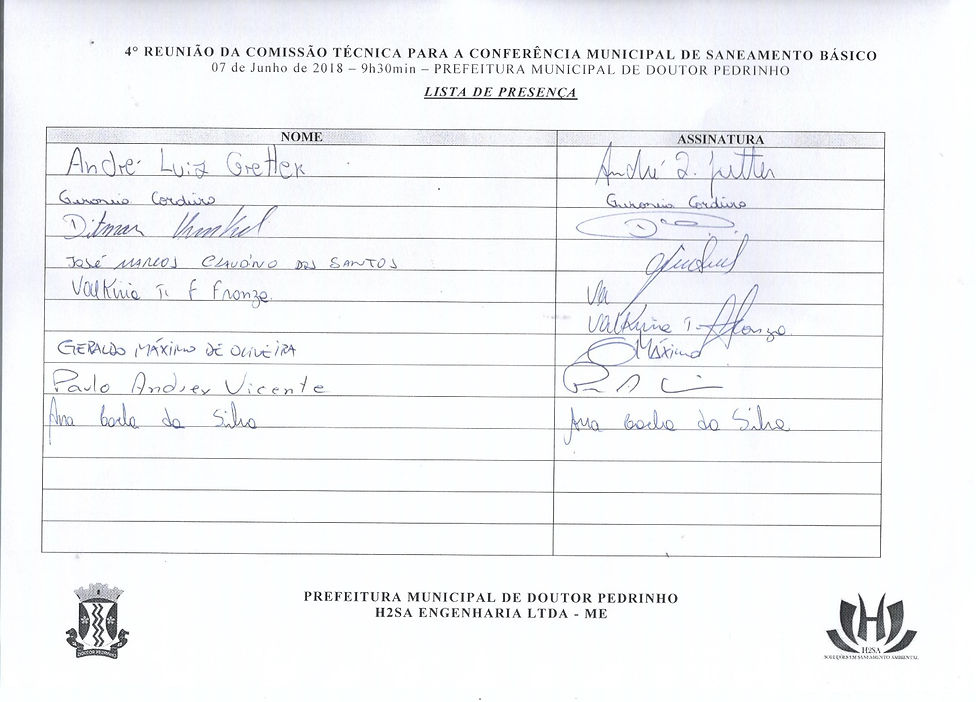 4° REUNIÃO DA COMISSÃO TÉCNICA PARA A CONFERÊNCIA MUNICIPAL DE SANEAMENTO BÁSICO
07 de Junho de 2018 – 9h30min – PREFEITURA MUNICIPAL DE DOUTOR PEDRINHO
LISTA DE PRESENÇA
NOME ASSINATURA
André Luiz André
Cordeiro Cordeiro
Ditmar
JOSÉ MARCOS CLAUDINO DOS SANTOS
Valkiria T. F Fronza
Valkiria T.
GERALDO MÁXIMO DE OLIVEIRA Máximo
Paulo Andrey Vicente
Ana Carla da Silva Ana Carla da Silva
PREFEITURA MUNICIPAL DE DOUTOR PEDRINHO
H2SA ENGENHARIA LTDA - ME
DOUTOR PEDRINHO
H2SA
SOLUÇÕES EM SANEAMENTO AMBIENTAL